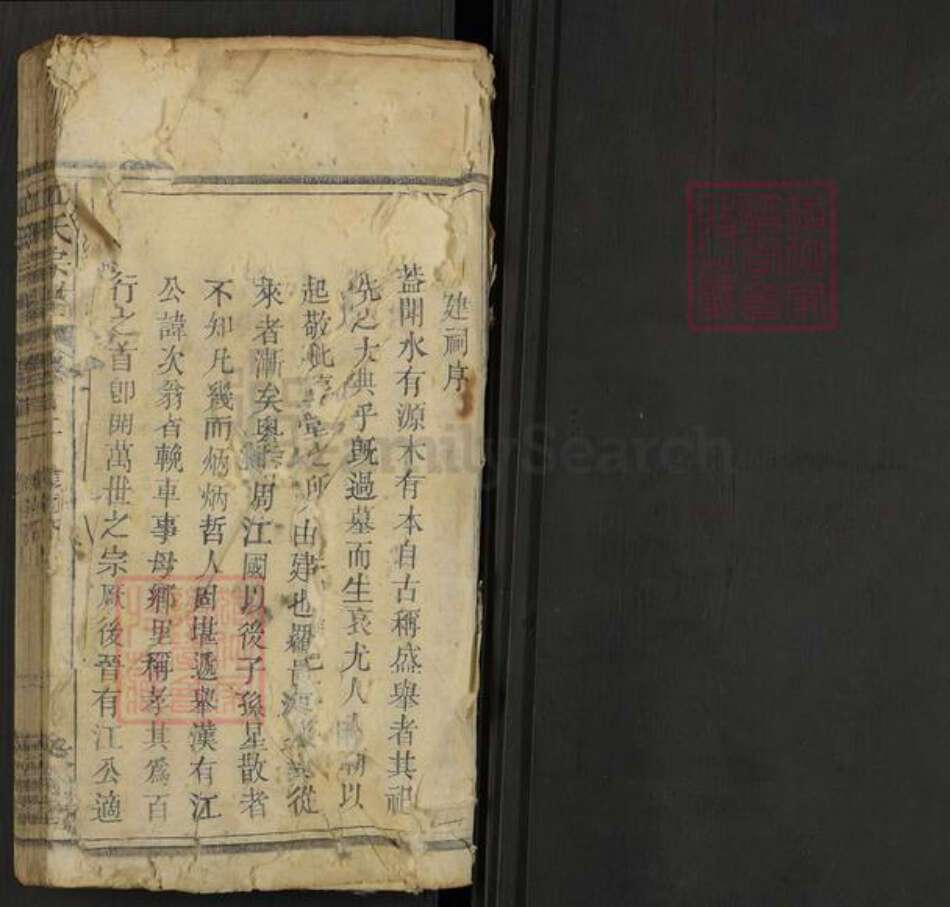 建祠序
蓋聞水有源木有本自古稱盛舉者其祀
先之大典乎既過墓而生哀尤人廟以
起敬此享堂之所由建也羅從
來者漸矣與周江國以後子孫星散者
不知凡幾而炳炳哲人固堪遞舉漢有江
公諱次翁者輓車事母鄉里稱孝其為百
行之首卽開萬世之宗厥後晉有江公適
氏宗譜
FamilySearch